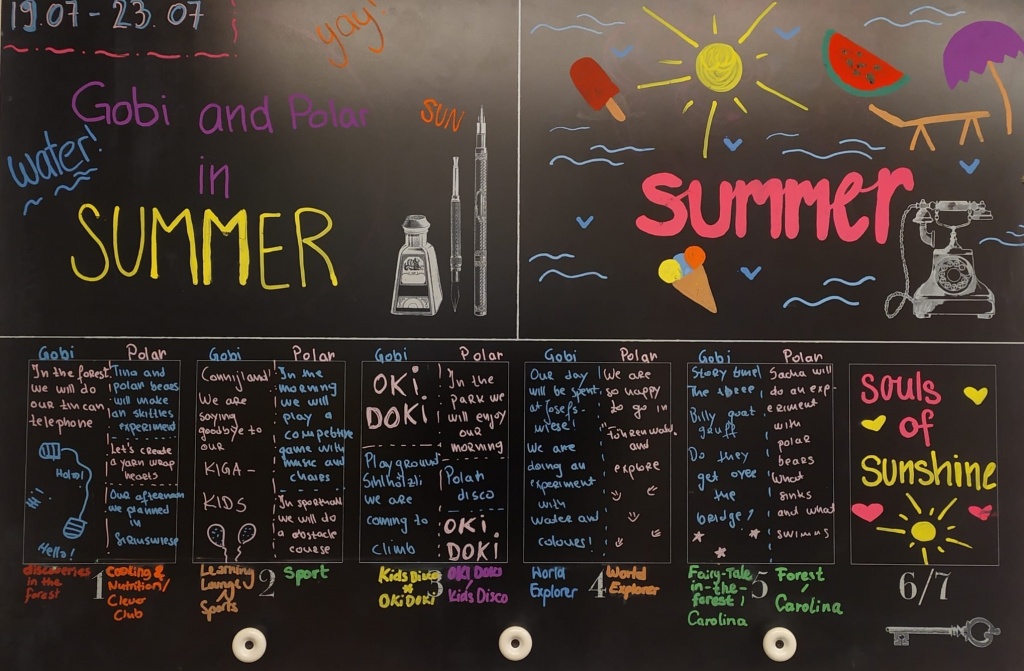 19.07 - 23.07
yay!
Gobi and Polar
in
SUMMER
water!
SUN
summer
Gobi
In the forest
we will do
our tin can
telephone
Hola!
Hi!
Hello!
discoveries
in the
forest
Polar
Tina and
polar bears
will make
an skittles
experiment
Let's create
a yarn wrap
hearts
Our afternoon
we planned
in
Siriuswiese
1
Cooking &
Nutrition/
Clever
Club
Gobi
We are
saying
goodbye to
our
KIGA-
KIDS
Learning
Sports
2
Polar
In the
morning
we will
play a
competitive
game with
music and
chairs
In sporthall
we will do
a obstacle
course
Sport
Gobi
OKi
DOKi
Playground
we are
coming to
climb
Kids Disco
OKiDOKi
3
Polar
In the
park we
will enjoy
our
morning
Polar
disco
OKi
DOKi
OKi DOKi
Kids Disco
Gobi
Our day
will be spent
at Josefs-
wiese!
We are
doing an
experiment
with
water and
colours!
World
Explorer
4
Polar
We are
so happy
to go in
and
explore
World
Explorer
Gobi
Story time!
The three
Billy goat
gruff
Do they
get over
the
bridge?
Fairy-Tale
in-the-
forest /
Carolina
5
Polar
Sacha will
do an exp-
eriment
with
polar
bears
What
sinks
and what
swimms
Forest
/
Carolina
souls
of
sunshine
6/7